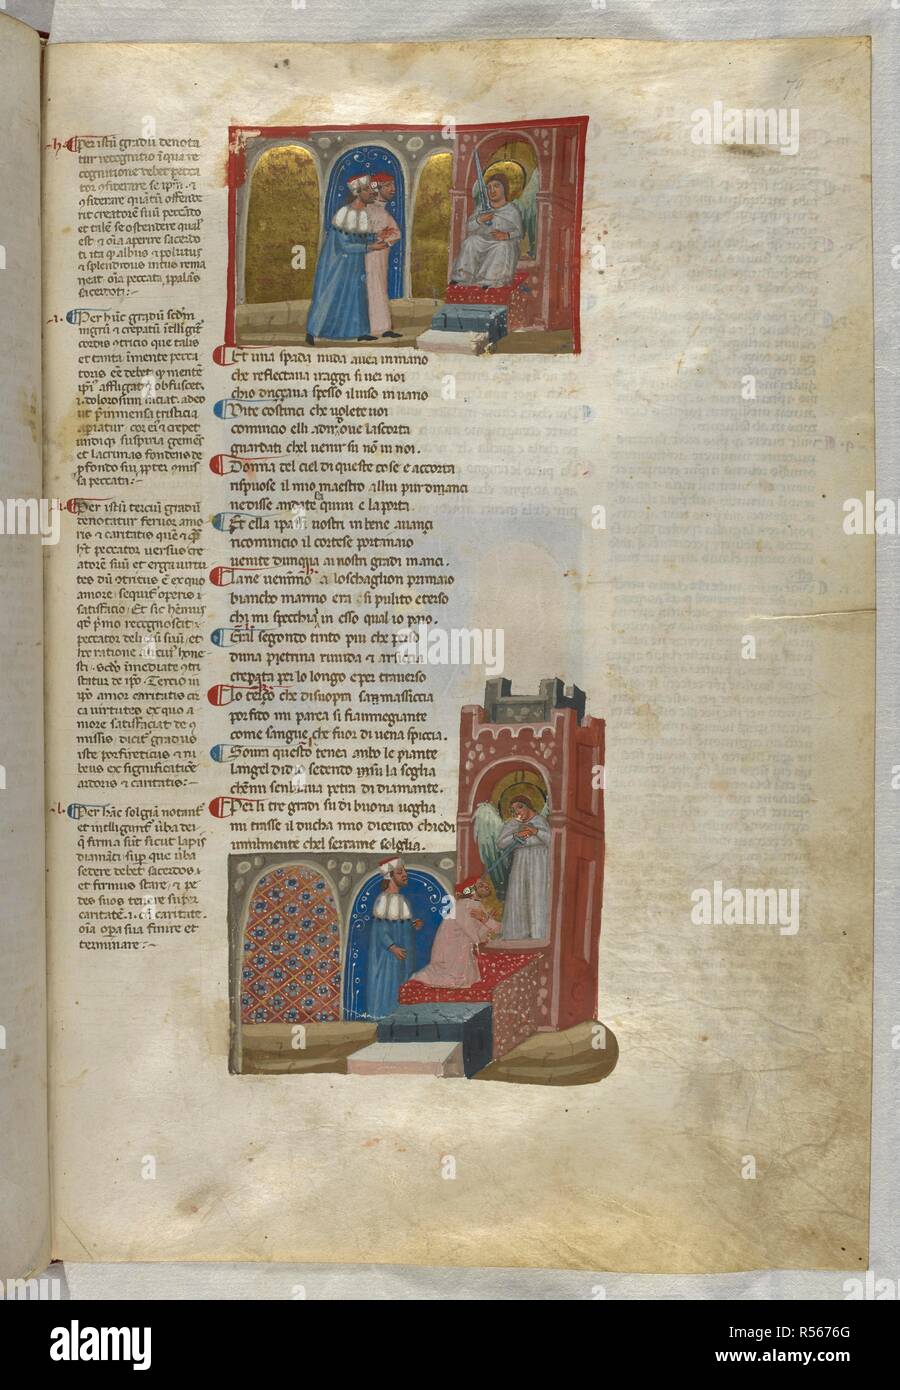 74
-h- Per istū gradū denota
tur recognitio ī qua re
cognitione debet pecca
tor ꝯsiderare se ip̄m. et
ꝯsiderare quātū offende
rit creatorē suū peccādo
et talē se ostendere qual'
est et oīa aperire sacerdo
ti ita ꝙ albus et politus
et splendidus intus rema
neat oīa peccata ppalās
sacerdoti:~
.i. Per hūc gradū scd̄m
nigrū et crepatū ītelligit̄
cordis ꝯtricio que talis
et tanta
ris debet ꝙ mentē
ip̄ī affligat et obfuscet
.i. dolorosam faciat. adeo
ut p īmensa tristicia
apiatur cor eī et crepet
undiqꝫ suspiria gemet
et lacrimas fondens de
pfondo sui, ppter ꝯmis
sa peccata:~
.k. Per istū terciū gradū
denotatur fervor amo
ris et caritatis que
hēt peccator versus cre
atorē suū et erga virtu
tes dū ꝯtritus ē ex quo
amore sequitᷣ operis
satisfacio. Et sic hēmus
qꝫ pͥmo recognoscit
peccator delictū suū et
hͨ ratione alicuiꝰ hone
sti. scd̄o īmediate ꝯtri
statur de ip̄o. Tercio in
ip̄o amor caritatis cir
ca virtutes ex quo a
more satisfaciat de ꝯ
missis dicit gradus
iste porfireticus et ru
beus ex significatiōe
ardoris et caritatis:~
.l. Per hāc solgiā notant̄
et intelligunt̄ v̄ba dei.
q̄ firma sūt sicut lapis
diamāti sup̄ que v̄ba
sedere debet sacerdos.
et firmus stare. et pe
des suos tenere super
caritatē .i. cū caritate.
oīa opa sua finire et
terminare:~
Et una spada nuda avea in mano
che reflectava iraggi si ver noi
chio driççava spesso il viso in vano
Dite costinci che volete voi
comincio elli adonque lascorta
guardati chel venir su nō vi noi.
Donna del ciel di queste cose e accorta
rispuose il mio maestro allui pur dinançi
ne disse andate la quivi e la porta.
Et ella ipassi vostri in bene avançi
ricomincio il cortese portinaio
venite dunqua ai nostri gradi inançi.
La ne venimmo a lo schaglion primaio
biancho marmo era si pulito e terso
chi mi specchia in esso qual io paio.
Era il segondo tinto piu che perso
duna pietrina ruvida et arsiccia
crepata per lo longo e per traverso
Lo terço che disuopra sammassiccia
porfido mi parea si fiammegiante
come sangue che fuor di vena spiccia.
Soura questo tenea ambo le piante
langel di dio sedendo insu la soglia
che mi senbiava petra di diamante.
Per li tre gradi su di buona voglia
mi trasse il ducha mio dicendo chiedi
umilmente chel serrame solglia.
alamy
Image ID: R5676G
www.alamy.com